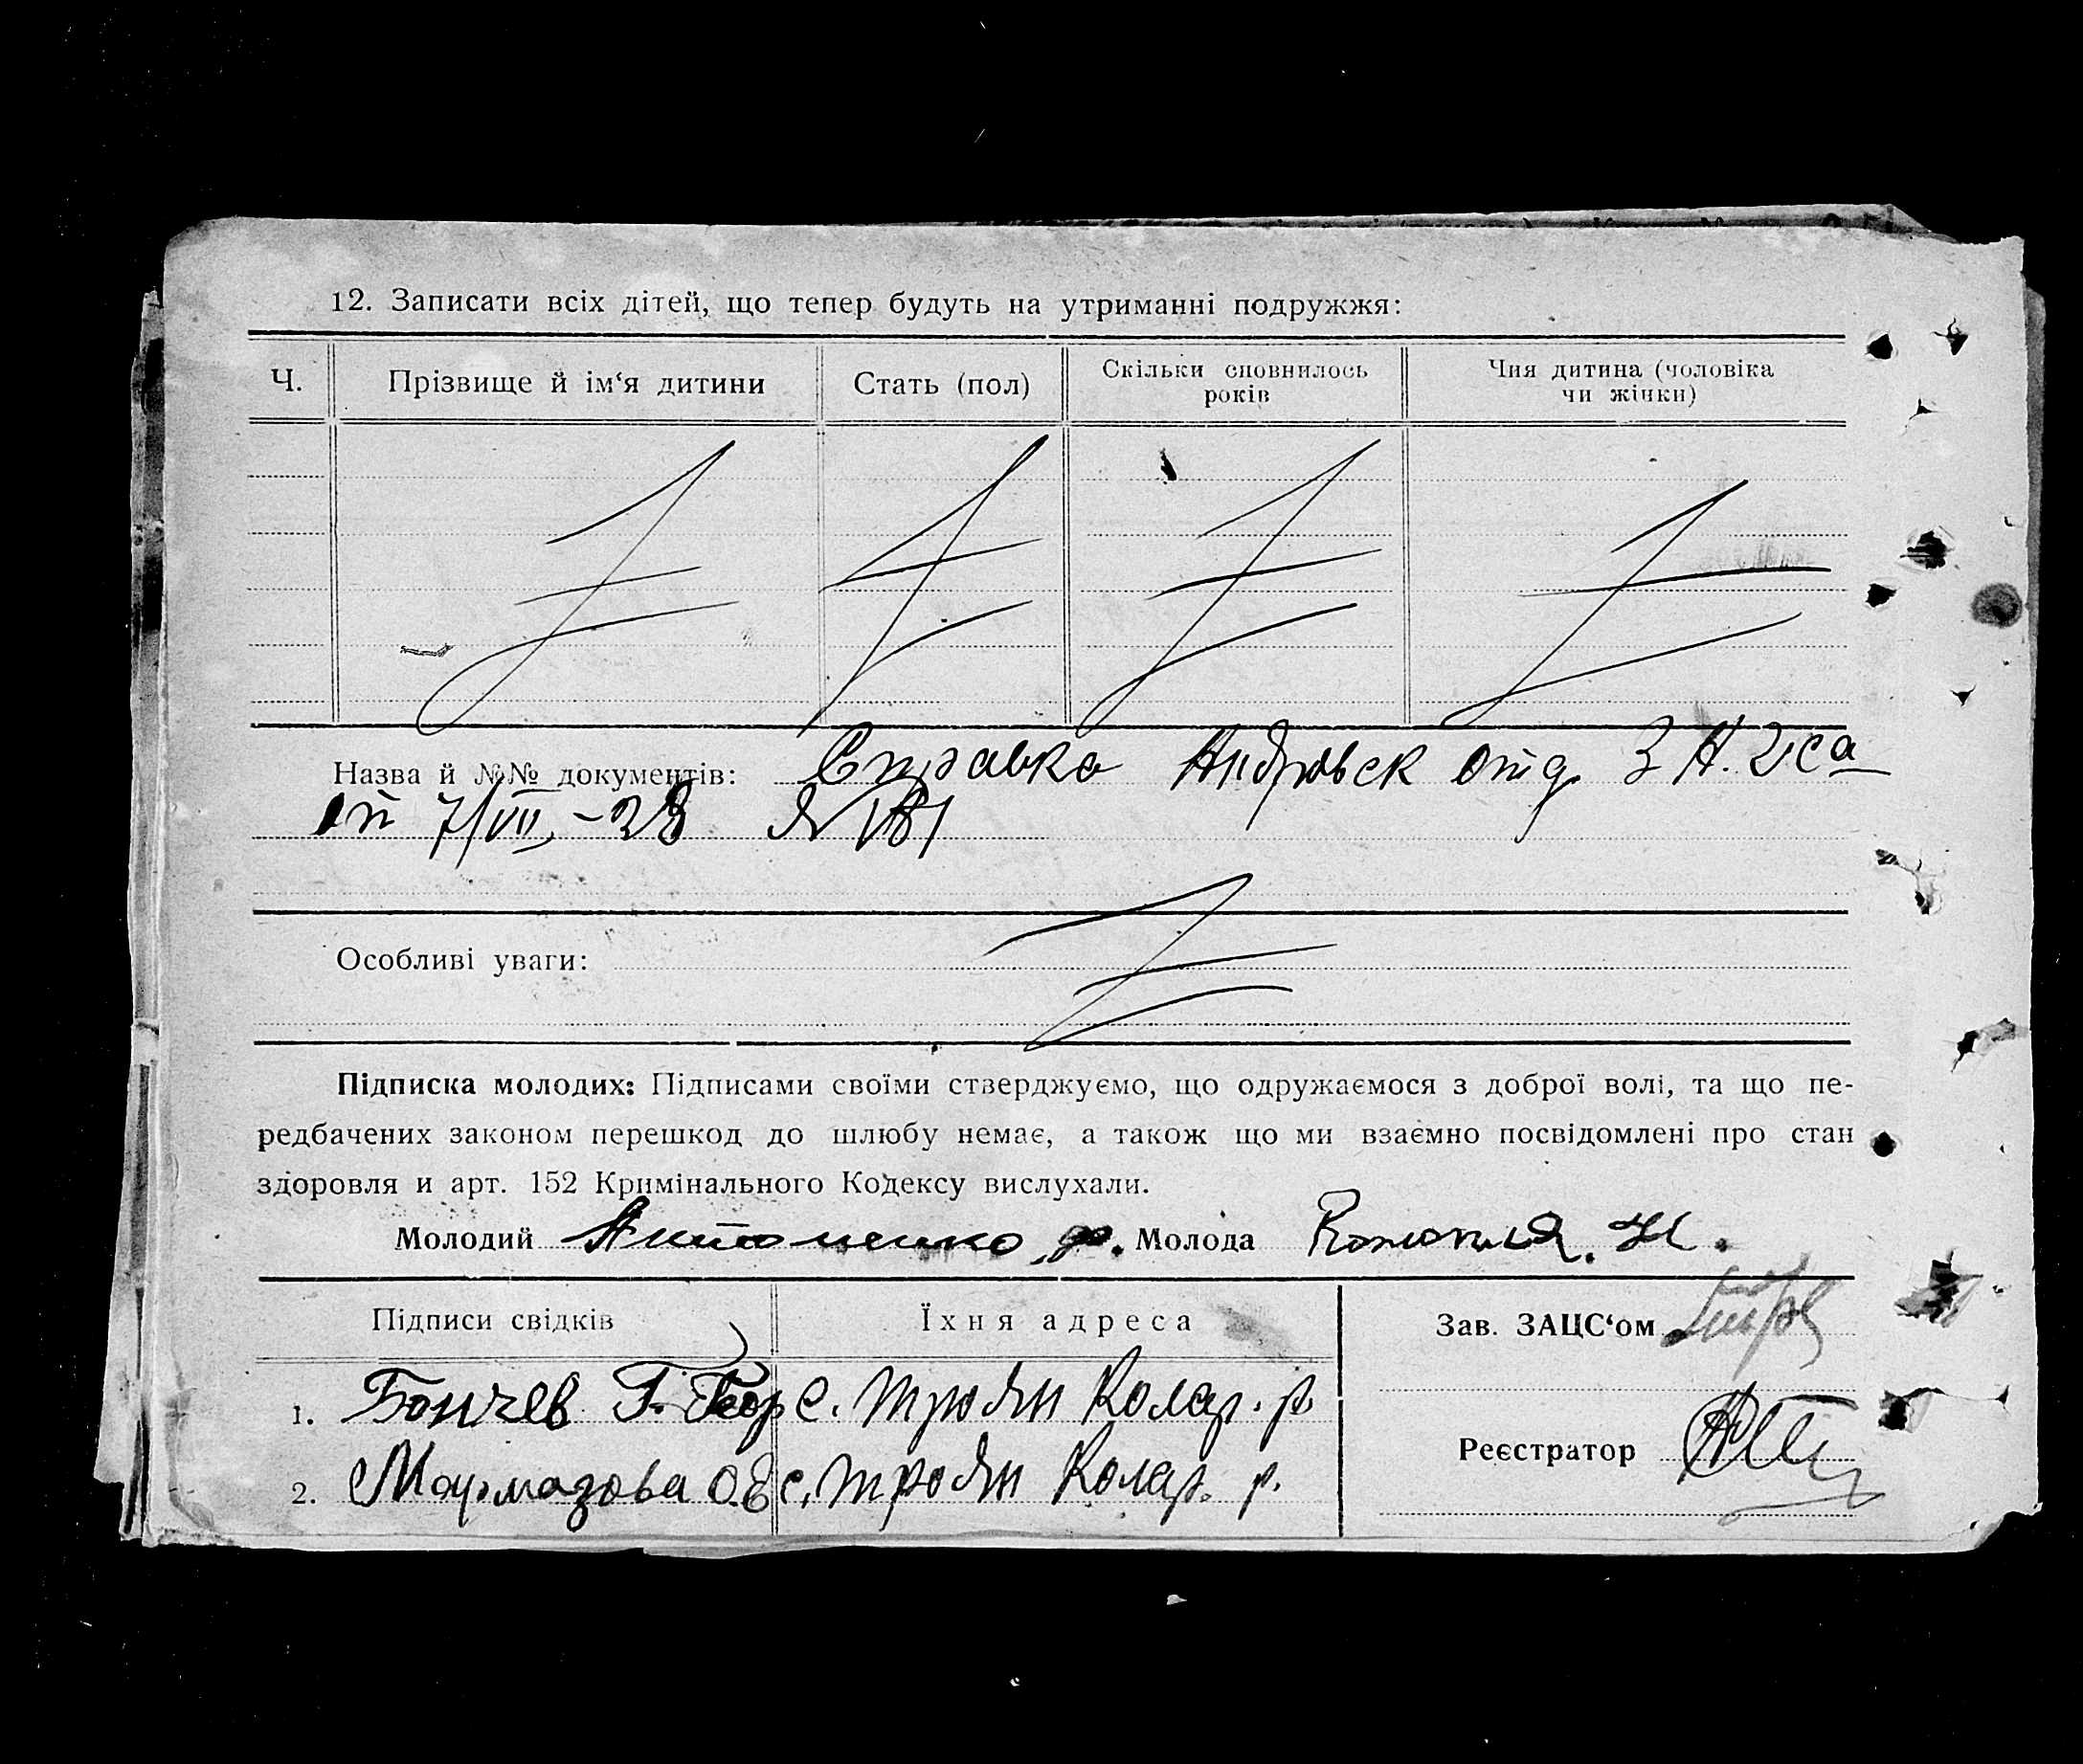 12. Записати всіх дітей, що тепер будуть на утриманні подружжя:
Ч. Прізвище й ім‘я дитини Стать (пол) Скільки сповнилось років Чия дитина (чоловіка чи жінки)
Назва й №№ документів: Справка Андровск отд. З А. Гса
от 7/VII -28 №
Особливі уваги:
Підписка молодих: Підписами своїми стверджуємо, що одружаємося з доброї волі, та що пе-
редбачених законом перешкод до шлюбу немає, а також що ми взаємно посвідомлені про стан
здоровля и арт. 152 Кримінального Кодексу вислухали.
Молодий Антоненко Ф. Молода
Підписи свідків Їхня адреса Зав. ЗАЦС‘ом
1. Бончев Г. Геор с. Троян Колар. р.
Реєстратор
2. Мармазова О. с. Троян Колар. р.